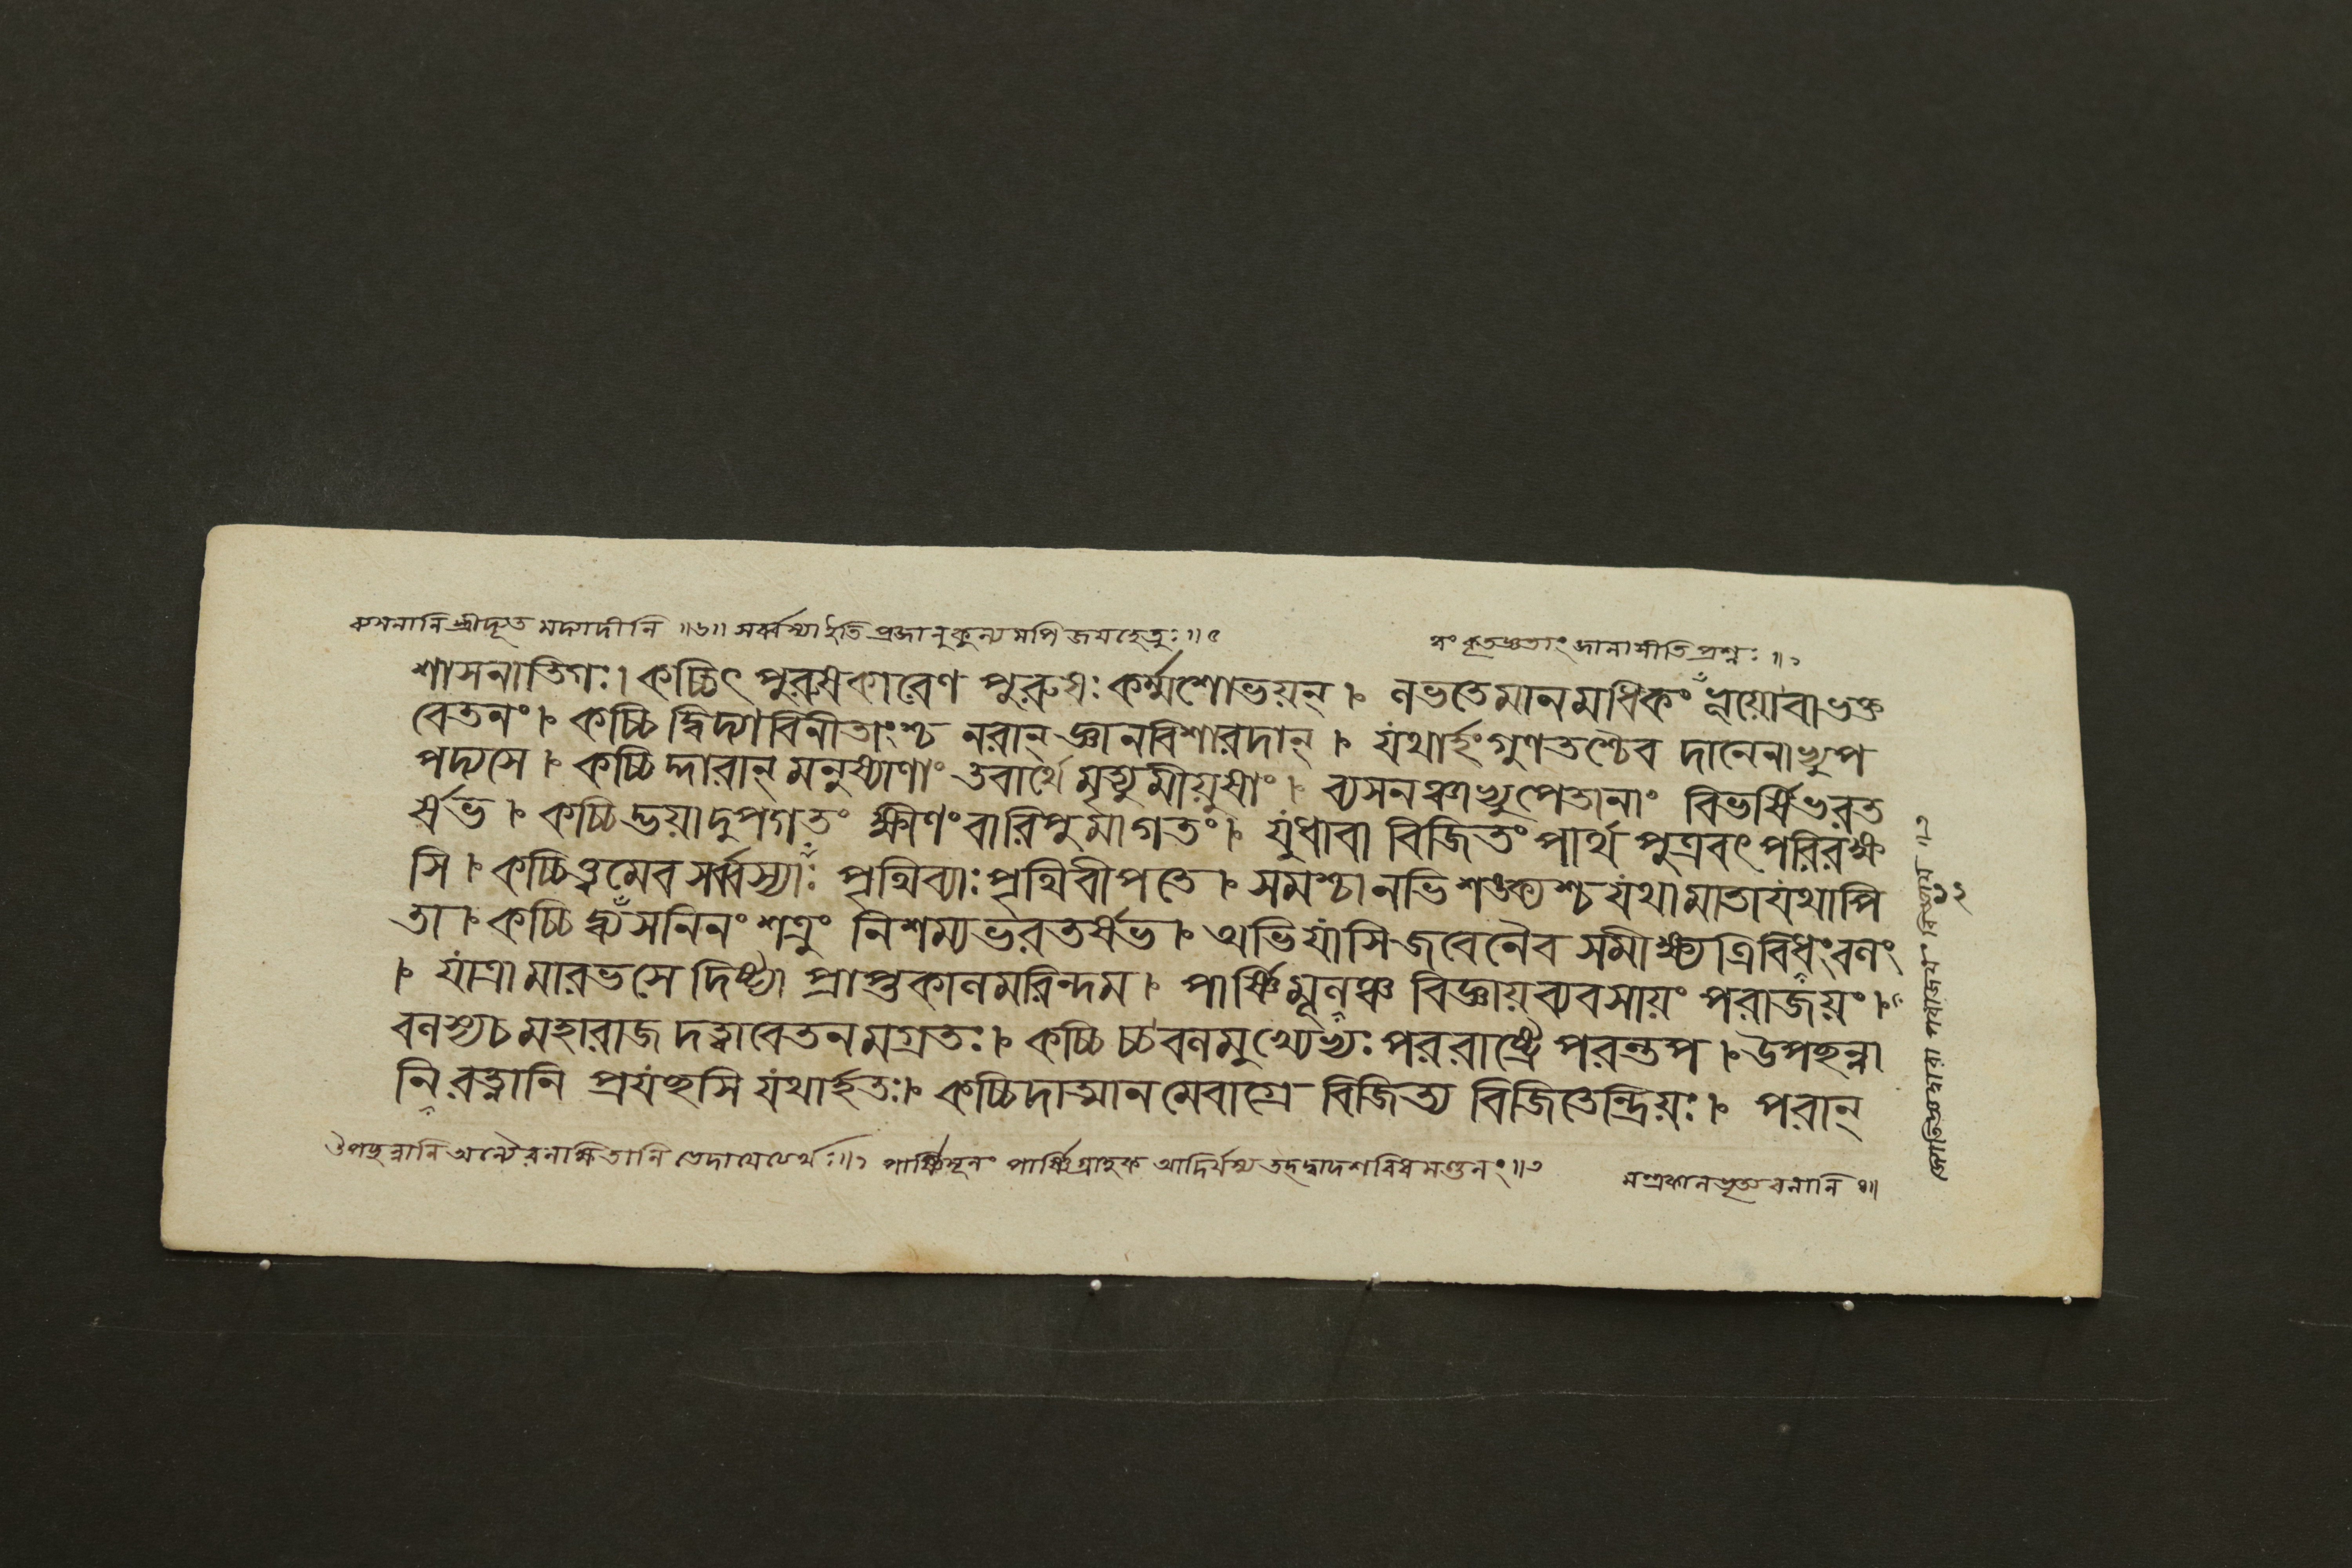 ব্যসনানি স্ত্রীদ্যূত মদ্যাদীনি ॥৬॥
শাসনাতিগঃ। কচ্চিৎ পুরুষকারেণ পুরুষঃ কর্ম্মশোভয়ন্ । লভতে মানমধিকং ভূয়োবাভক্ত
বেতনং। কচ্চি দ্বিদ্যাবিনীতাংশ্চ নরান্ জ্ঞানবিশারদান্ । যথার্হং গুণতশ্চৈব দানেনাভ্যুপ
পদ্যসে । কচ্চি দ্দারান্ মনুষ্যাণাং তবার্থে মৃত্যুমীয়ুষাং । ব্যসনঞ্চাভ্যুপেতানাং বিভর্ষি ভরত
র্ষভ । কচ্চিদ্ভয়াদুপগতং ক্ষীণং বারিপুমাগতং। যুধাবা বিজিতং পার্থ পুত্রবৎ পরিরক্ষ
সি । কচ্চিত্ত্বমেব সর্ব্বস্যাঃ পৃথিব্যাঃ পৃথিবীপতে । সমশ্চানভিশঙ্ক্যশ্চ যথা মাতা যথা পি
তা । কচ্চি দ্ব্যসনিনং শত্রুং নিশম্য ভরতর্ষভ । অভিযাসি জবেনৈব সমীক্ষ্য ত্রিবিধংবলং
। যাত্রামারভসে দিষ্ট্যা প্রাপ্তকালমরিন্দম । পার্ষ্ণিমূলঞ্চ বিজ্ঞায় ব্যবসায়ং পরাজয়ং ।
বলস্যচ মহারাজ দত্ত্বাবেতনমগ্রতঃ। কচ্চি চ্চ বলমুখ্যেভ্যঃ পররাষ্ট্রে পরন্তপ । উপছন্না
নি রত্নানি প্রযচ্ছসি যথার্হতঃ। কচ্চিদাত্মানমেবাগ্রে বিজিত্য বিজিতেন্দ্রিয়ঃ। পরান্
পার্ষ্ণিমূলং পার্ষ্ণিগ্রাহক আদির্যস্য তদ্দ্বাদশবিধ মণ্ডলং॥৩